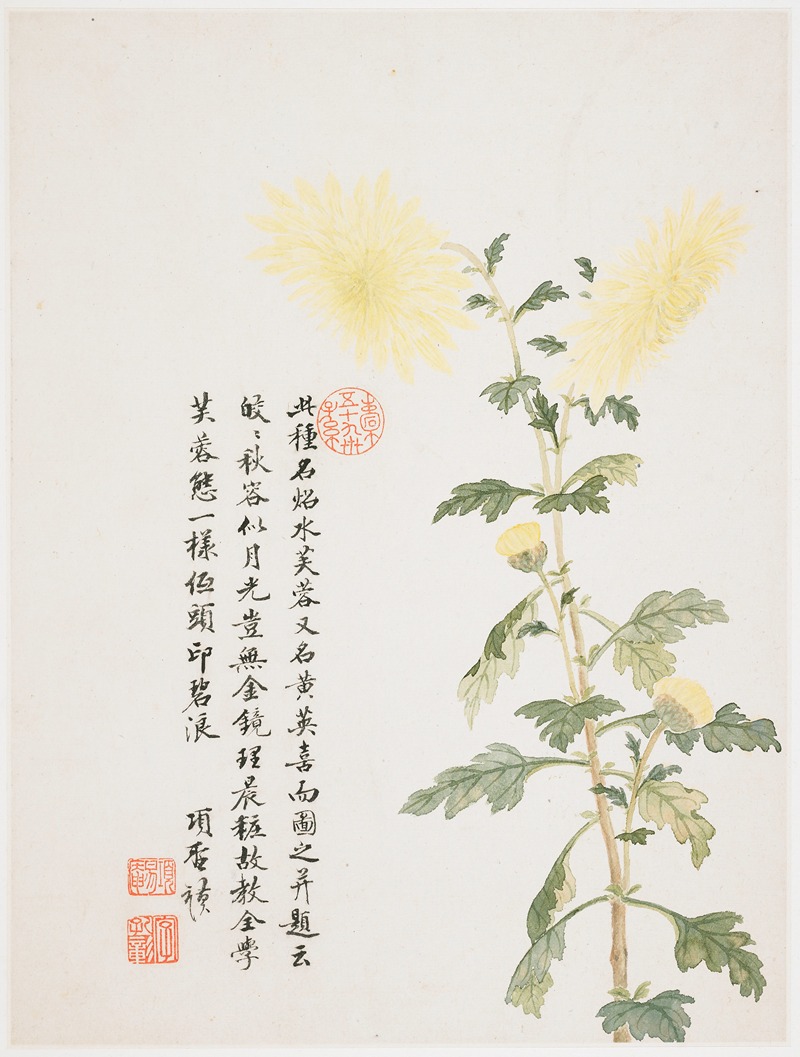 此種名炤水芙蓉又名黃英喜而圖之并題云
皎〻秋容似月光豈無金鏡理晨粧故教全學
芙蓉態一樣低頭印碧浪
項聖謨
字孔彰